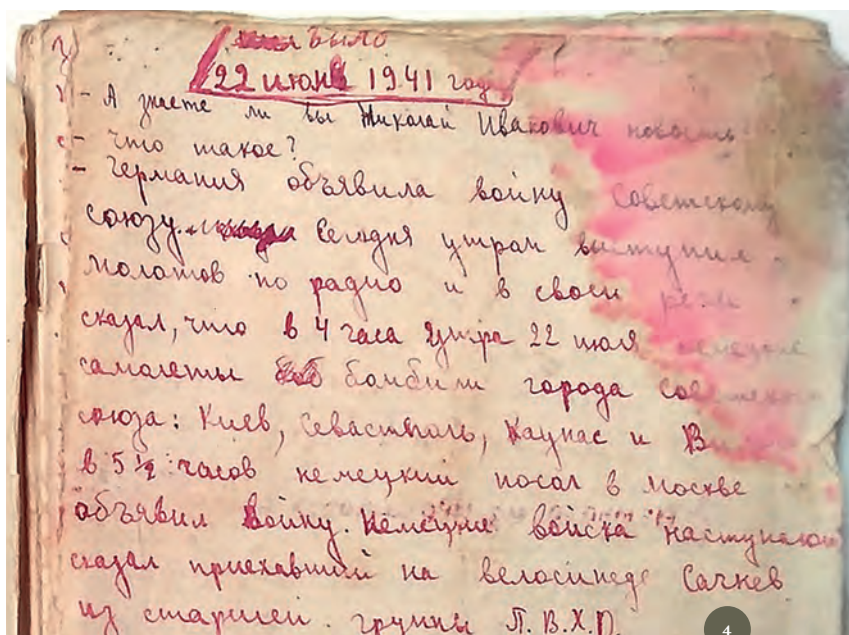 было
22 июня 1941 года
- А знаете ли вы Николай Иванович новость
- что такое?
- Германия объявила войну Советскому
союзу. Сегодня утром выступил
Молотов по радио и в своей речи
сказал, что в 4 часа утра 22 июля немецкие
самолеты бомбили города Советского
союза: Киев, Севастополь, Каунас и
в 5 ½ часов немецкий посол в Москве
объявил войну. Немецкие войска наступают
сказал приехавший на велосипеде Сачков
из старшей группы П.В.Х.О.
4